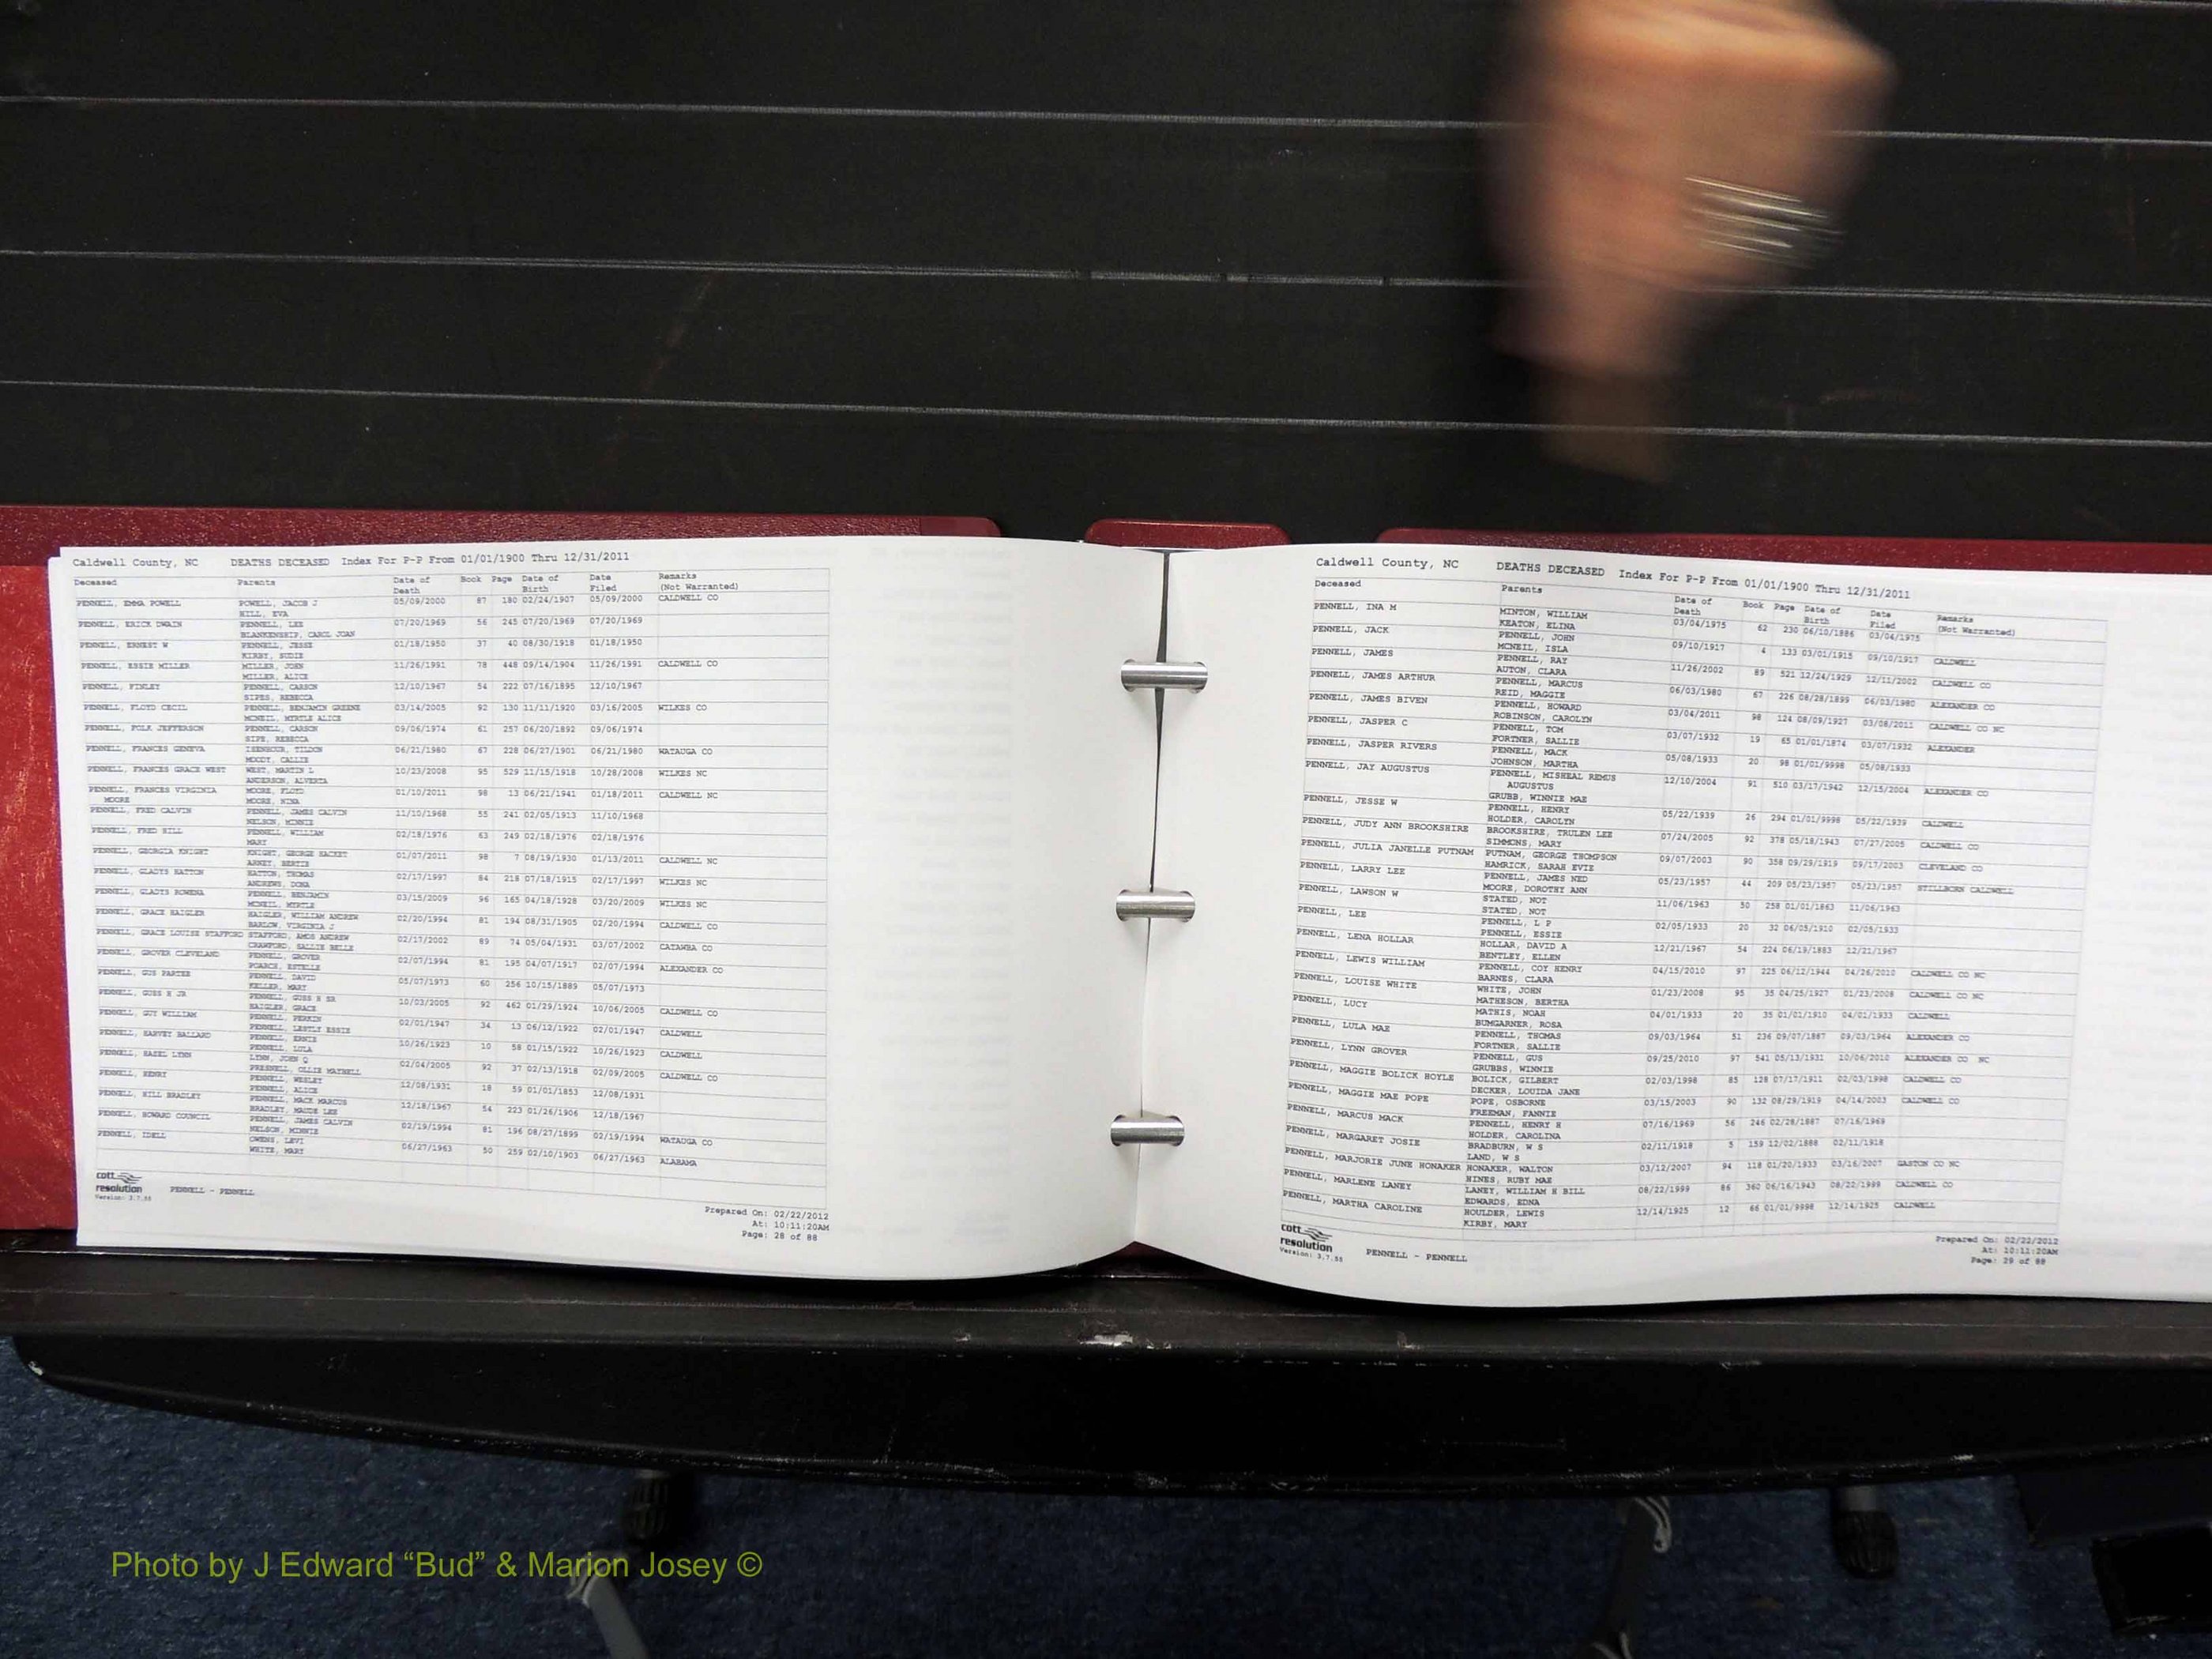 Caldwell County, NC DEATHS DECEASED Index For P-P From 01/01/1900 Thru 12/31/2011
Deceased Parents Date of Death Book Page Date of Birth Date Filed Remarks (Not Warranted)
PENNELL, EMMA POWELL POWELL, JACOB J 05/09/2000 87 180 02/24/1907 05/09/2000 CALDWELL CO
HILL, EVA
PENNELL, ERICK DWAIN PENNELL, LEE 07/20/1969 56 245 07/20/1969 07/20/1969
BLANKENSHIP, CAROL JOAN
PENNELL, ERNEST W PENNELL, JESSE 01/18/1950 37 40 08/30/1918 01/18/1950
KIRBY, SUDIE
PENNELL, ESSIE MILLER MILLER, JOHN 11/26/1991 78 448 09/14/1904 11/26/1991 CALDWELL CO
MILLER, ALICE
PENNELL, FINLEY PENNELL, CARSON 12/10/1967 54 222 07/16/1895 12/10/1967
SIPES, REBECCA
PENNELL, FLOYD CECIL PENNELL, BENJAMIN GREENE 03/14/2005 92 130 11/11/1920 03/16/2005 WILKES CO
MCNEIL, MYRTLE ALICE
PENNELL, FOLK JEFFERSON PENNELL, CARSON 09/06/1974 61 257 06/20/1892 09/06/1974
SIPE, REBECCA
PENNELL, FRANCES GENEVA ISENHOUR, TILDON 06/21/1980 67 228 06/27/1901 06/21/1980 WATAUGA CO
MOODY, CALLIE
PENNELL, FRANCES GRACE WEST WEST, MARTIN L 10/23/2008 95 529 11/15/1918 10/28/2008 WILKES NC
ANDERSON, ALVERTA
PENNELL, FRANCES VIRGINIA MOORE, FLOYD 01/10/2011 98 13 06/21/1941 01/18/2011 CALDWELL NC
MOORE MOORE, NINA
PENNELL, FRED CALVIN PENNELL, JAMES CALVIN 11/10/1968 55 241 02/05/1913 11/10/1968
NELSON, MINNIE
PENNELL, FRED HILL PENNELL, WILLIAM 02/18/1976 63 249 02/18/1976 02/18/1976
MARY
PENNELL, GEORGIA KNIGHT KNIGHT, GEORGE HACKET 01/07/2011 98 7 08/19/1930 01/13/2011 CALDWELL NC
ARNEY, BERTIE
PENNELL, GLADYS HATTON HATTON, THOMAS 02/17/1997 84 218 07/18/1915 02/17/1997 WILKES NC
ANDREWS, DONA
PENNELL, GLADYS ROWENA PENNELL, BENJAMIN 03/15/2009 96 165 04/18/1928 03/20/2009 WILKES NC
MCNEIL, MYRTLE
PENNELL, GRACE HAIGLER HAIGLER, WILLIAM ANDREW 02/20/1994 81 194 08/31/1905 02/20/1994 CALDWELL CO
BARLOW, VIRGINIA J
PENNELL, GRACE LOUISE STAFFORD STAFFORD, AMOS ANDREW 02/17/2002 89 74 05/04/1931 03/07/2002 CATAWBA CO
CRAWFORD, SALLIE BELLE
PENNELL, GROVER CLEVELAND PENNELL, GROVER 02/07/1994 81 195 04/07/1917 02/07/1994 ALEXANDER CO
POARCH, ESTELLE
PENNELL, GUS PARTEE PENNELL, DAVID 05/07/1973 60 256 10/15/1889 05/07/1973
KELLER, MARY
PENNELL, GUSS H JR PENNELL, GUSS H SR 10/03/2005 92 462 01/29/1924 10/06/2005 CALDWELL CO
HAIGLER, GRACE
PENNELL, GUY WILLIAM PENNELL, PERKIN 02/01/1947 34 13 06/12/1922 02/01/1947 CALDWELL
PENNELL, LESTLY ESSIE
PENNELL, HARVEY BALLARD PENNELL, ERNIE 10/26/1923 10 58 01/15/1922 10/26/1923 CALDWELL
PENNELL, LULA
PENNELL, HAZEL LYNN LYNN, JOHN Q 02/04/2005 92 37 02/13/1918 02/09/2005 CALDWELL CO
PRESNELL, OLLIE MAYBELL
PENNELL, HENRY PENNELL, WESLEY 12/08/1931 18 59 01/01/1853 12/08/1931
PENNELL, ALICE
PENNELL, HILL BRADLEY PENNELL, MACK MARCUS 12/18/1967 54 223 01/26/1906 12/18/1967
BRADLEY, MAUDE LEE
PENNELL, HOWARD COUNCIL PENNELL, JAMES CALVIN 02/19/1994 81 196 08/27/1899 02/19/1994 WATAUGA CO
NELSON, MINNIE
PENNELL, IDELL OWENS, LEVI 06/27/1963 50 259 02/10/1903 06/27/1963 ALABAMA
WHITE, MARY
cott
resolution PENNELL - PENNELL
Version: 3.7.55
Prepared On: 02/22/2012
At: 10:11:20AM
Page: 28 of 88
Caldwell County, NC DEATHS DECEASED Index For P-P From 01/01/1900 Thru 12/31/2011
Deceased Parents Date of Death Book Page Date of Birth Date Filed Remarks (Not Warranted)
PENNELL, INA M MINTON, WILLIAM 03/04/1975 62 230 06/10/1886 03/04/1975
KEATON, ELINA
PENNELL, JACK PENNELL, JOHN 09/10/1917 4 133 03/01/1915 09/10/1917 CALDWELL
MCNEIL, ISLA
PENNELL, JAMES PENNELL, RAY 11/26/2002 89 521 12/24/1929 12/11/2002 CALDWELL CO
AUTON, CLARA
PENNELL, JAMES ARTHUR PENNELL, MARCUS 06/03/1980 67 226 08/28/1899 06/03/1980 ALEXANDER CO
REID, MAGGIE
PENNELL, JAMES BIVEN PENNELL, HOWARD 03/04/2011 98 124 08/09/1927 03/08/2011 CALDWELL CO NC
ROBINSON, CAROLYN
PENNELL, JASPER C PENNELL, TOM 03/07/1932 19 65 01/01/1874 03/07/1932 ALEXANDER
FORTNER, SALLIE
PENNELL, JASPER RIVERS PENNELL, MACK 05/08/1933 20 98 01/01/9998 05/08/1933
JOHNSON, MARTHA
PENNELL, JAY AUGUSTUS PENNELL, MISHEAL REMUS 12/10/2004 91 510 03/17/1942 12/15/2004 ALEXANDER CO
AUGUSTUS
GRUBB, WINNIE MAE
PENNELL, JESSE W PENNELL, HENRY 05/22/1939 26 294 01/01/9998 05/22/1939 CALDWELL
HOLDER, CAROLYN
PENNELL, JUDY ANN BROOKSHIRE BROOKSHIRE, TRULEN LEE 07/24/2005 92 378 05/18/1943 07/27/2005 CALDWELL CO
SIMMONS, MARY
PENNELL, JULIA JANELLE PUTNAM PUTNAM, GEORGE THOMPSON 09/07/2003 90 358 09/29/1919 09/17/2003 CLEVELAND CO
HAMRICK, SARAH EVIE
PENNELL, LARRY LEE PENNELL, JAMES NED 05/23/1957 44 209 05/23/1957 05/23/1957 STILLBORN CALDWELL
MOORE, DOROTHY ANN
PENNELL, LAWSON W STATED, NOT 11/06/1963 50 258 01/01/1863 11/06/1963
STATED, NOT
PENNELL, LEE PENNELL, L P 02/05/1933 20 32 06/05/1910 02/05/1933
PENNELL, ESSIE
PENNELL, LENA HOLLAR HOLLAR, DAVID A 12/21/1967 54 224 06/19/1883 12/21/1967
BENTLEY, ELLEN
PENNELL, LEWIS WILLIAM PENNELL, COY HENRY 04/15/2010 97 225 06/12/1944 04/26/2010 CALDWELL CO NC
BARNES, CLARA
PENNELL, LOUISE WHITE WHITE, JOHN 01/23/2008 95 35 04/25/1927 01/23/2008 CALDWELL CO NC
MATHESON, BERTHA
PENNELL, LUCY MATHIS, NOAH 04/01/1933 20 35 01/01/1910 04/01/1933 CALDWELL
BUMGARNER, ROSA
PENNELL, LULA MAE PENNELL, THOMAS 09/03/1964 51 236 09/07/1887 09/03/1964 ALEXANDER CO
FORTNER, SALLIE
PENNELL, LYNN GROVER PENNELL, GUS 09/25/2010 97 541 05/13/1931 10/06/2010 ALEXANDER CO NC
GRUBBS, WINNIE
PENNELL, MAGGIE BOLICK HOYLE BOLICK, GILBERT 02/03/1998 85 128 07/17/1911 02/03/1998 CALDWELL CO
DECKER, LOUIDA JANE
PENNELL, MAGGIE MAE POPE POPE, OSBORNE 03/15/2003 90 132 08/29/1919 04/14/2003 CALDWELL CO
FREEMAN, FANNIE
PENNELL, MARCUS MACK PENNELL, HENRY H 07/16/1969 56 246 02/28/1887 07/16/1969
HOLDER, CAROLINA
PENNELL, MARGARET JOSIE BRADBURN, W S 02/11/1918 5 159 12/02/1888 02/11/1918
LAND, W S
PENNELL, MARJORIE JUNE HONAKER HONAKER, WALTON 03/12/2007 94 118 01/20/1933 03/16/2007 GASTON CO NC
HINES, RUBY MAE
PENNELL, MARLENE LANEY LANEY, WILLIAM H BILL 08/22/1999 86 360 06/16/1943 08/22/1999 CALDWELL CO
EDWARDS, EDNA
PENNELL, MARTHA CAROLINE HOULDER, LEWIS 12/14/1925 12 66 01/01/9998 12/14/1925 CALDWELL
KIRBY, MARY
cott
resolution PENNELL - PENNELL
Version: 3.7.55
Prepared On: 02/22/2012
At: 10:11:20AM
Page: 29 of 88
Photo by J Edward “Bud” & Marion Josey ©